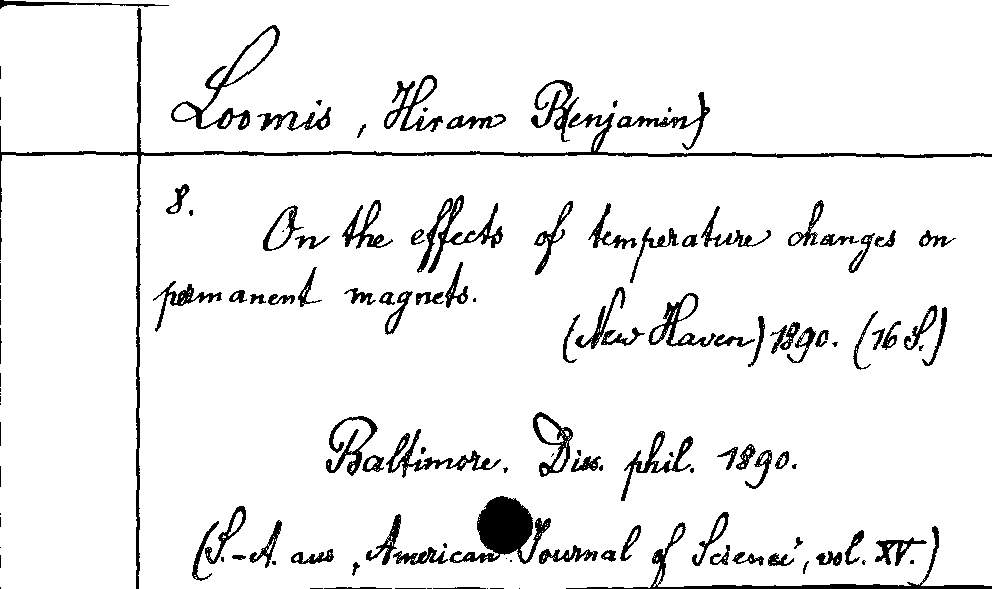 Loomis, Hiram B(enjamin)
8.
On the effects of temperature changes on
permanent magnets.
(New Haven) 1890. (16 S.)
Baltimore. Diss. phil. 1890.
(S.-A. aus ‚American Journal of Science', vol. XV.)